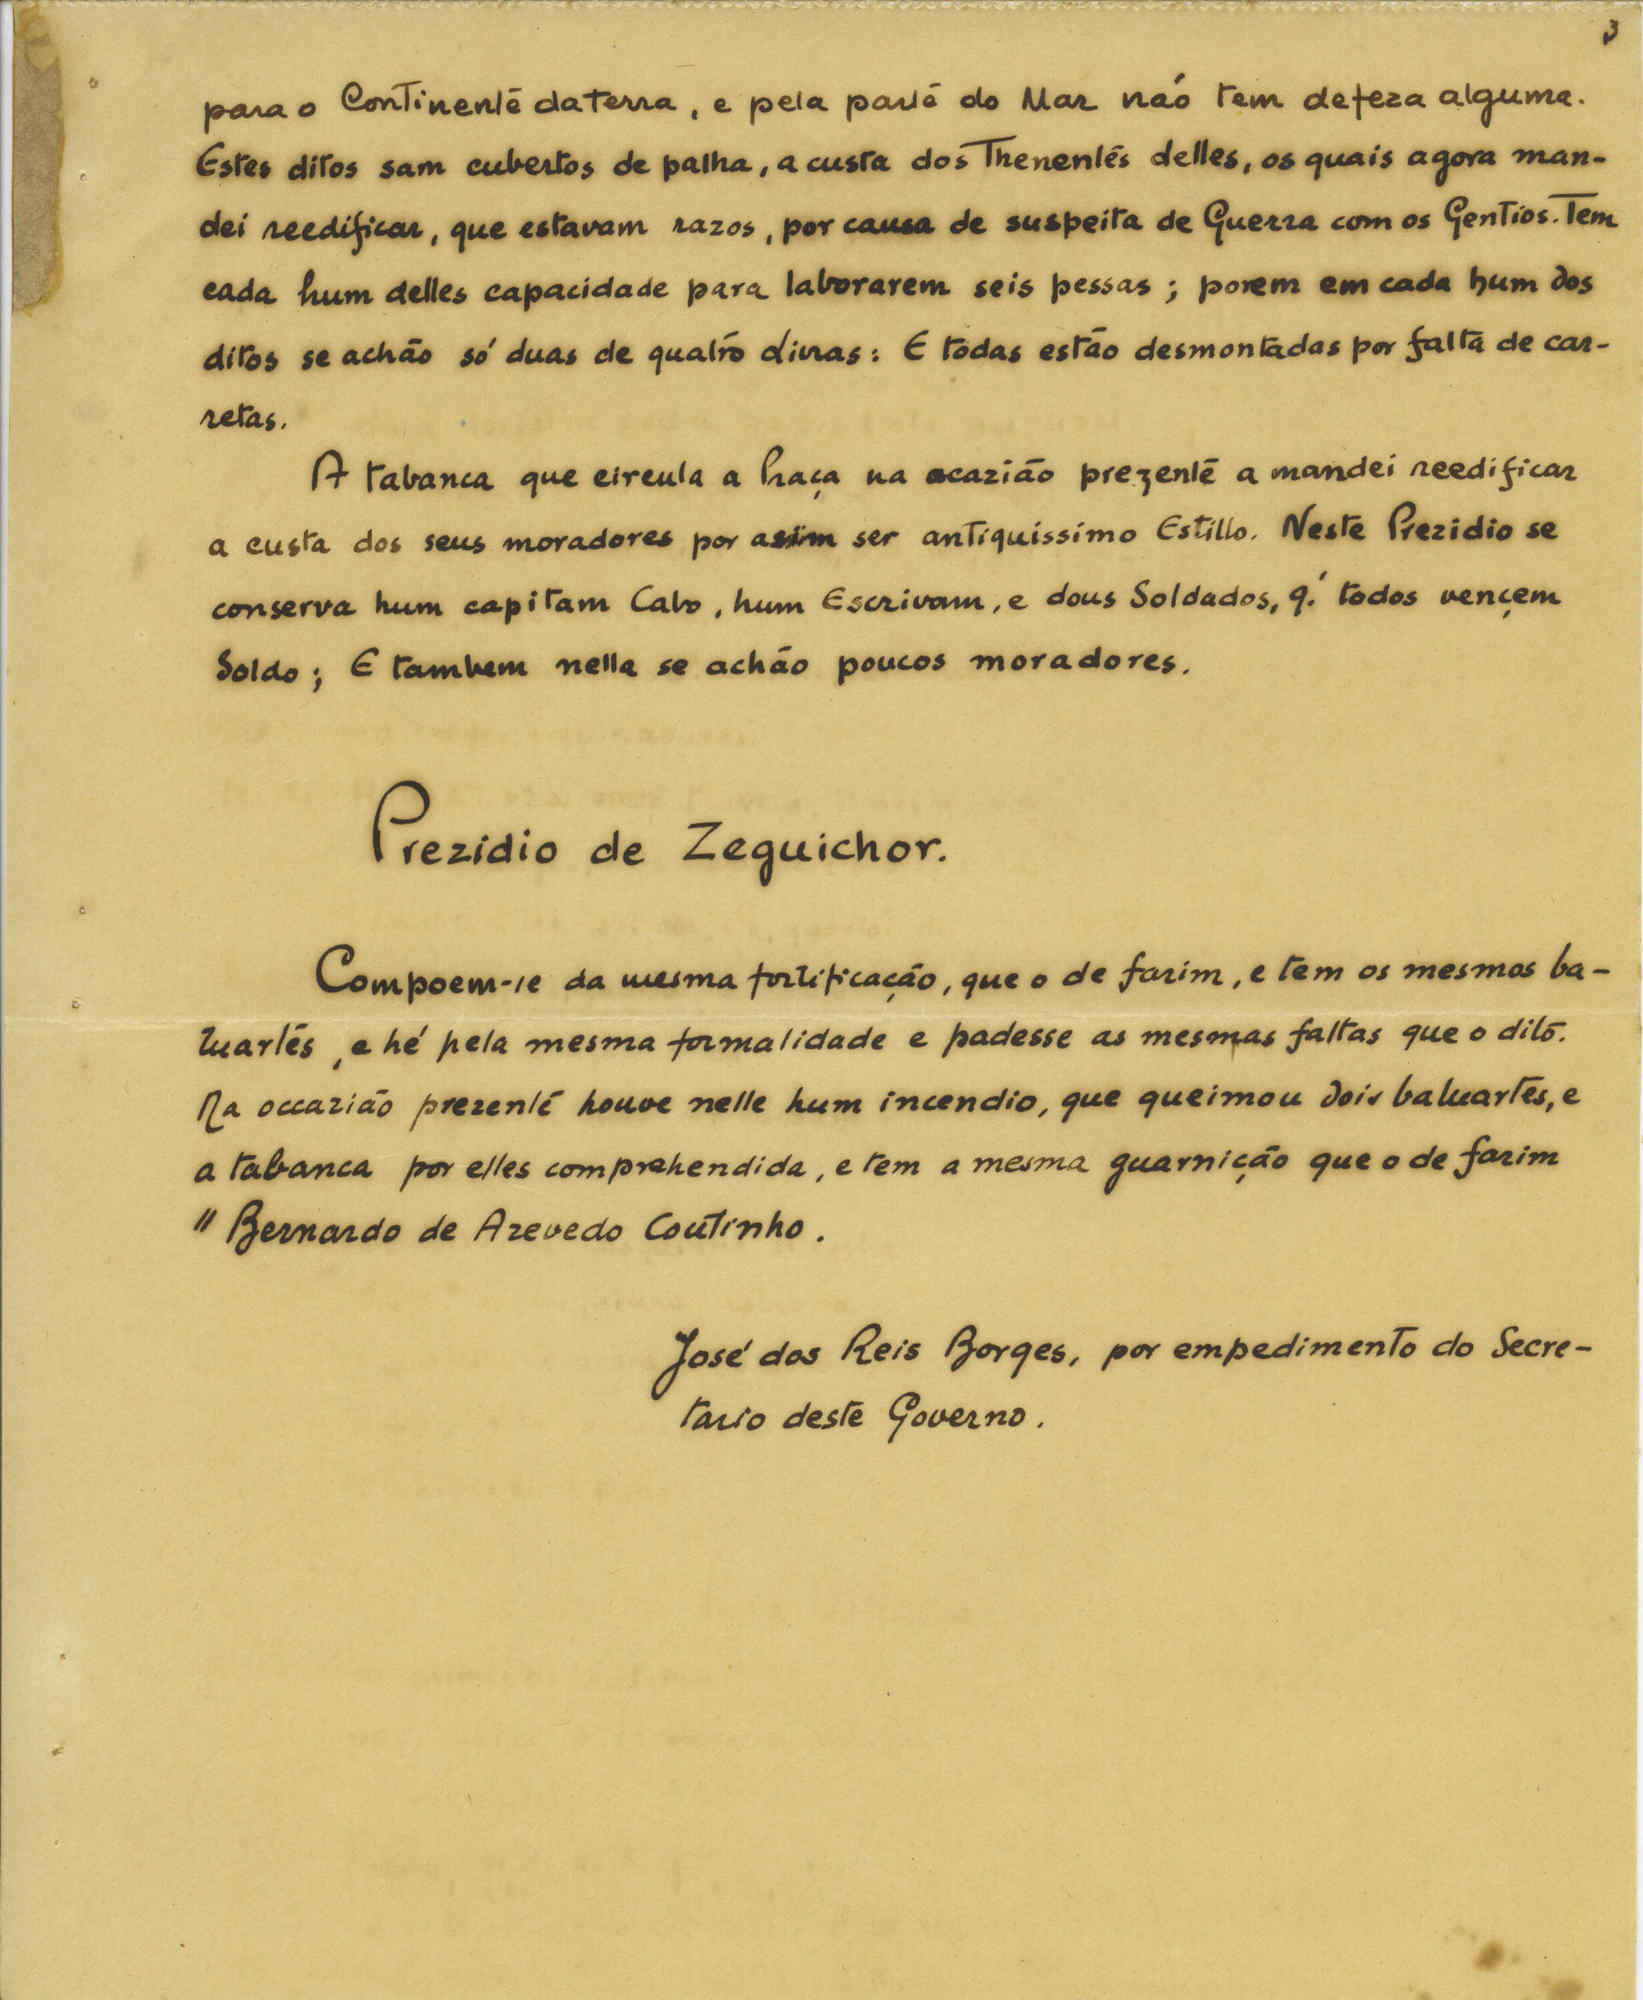 3
para o Continente da terra, e pela parte do Mar não tem defeza alguma.
Estes ditos sam cubertos de palha, a custa dos Thenentes delles, os quais agora man-
dei reedificar, que estavam razos, por causa de suspeita de Guerra com os Gentios. Tem
cada hum delles capacidade para laborarem seis pessas; porem em cada hum dos
ditos se achão só duas de quatro Livras: E todas estão desmontadas por falta de car-
retas.
A tabanca que circula a Praça na ocazião prezente a mandei reedificar
a custa dos seus moradores por assim ser antiquissimo Estillo. Neste Prezidio se
conserva hum capitam Cabo, hum Escrivam, e dous Soldados, q.' todos vençem
Soldo; E tambem nelle se achão poucos moradores.
Prezidio de Zeguichor.
Compoem-se da mesma fortificação, que o de farim, e tem os mesmos ba-
luartes, e hé pela mesma formalidade e padesse as mesmas faltas que o dito.
Na occazião prezente houve nelle hum incendio, que queimou dois baluartes, e
a tabanca por elles comprehendida, e tem a mesma guarnição que o de farim
" Bernardo de Azevedo Coutinho.
José dos Reis Borges, por empedimento do Secre-
tario deste Governo.